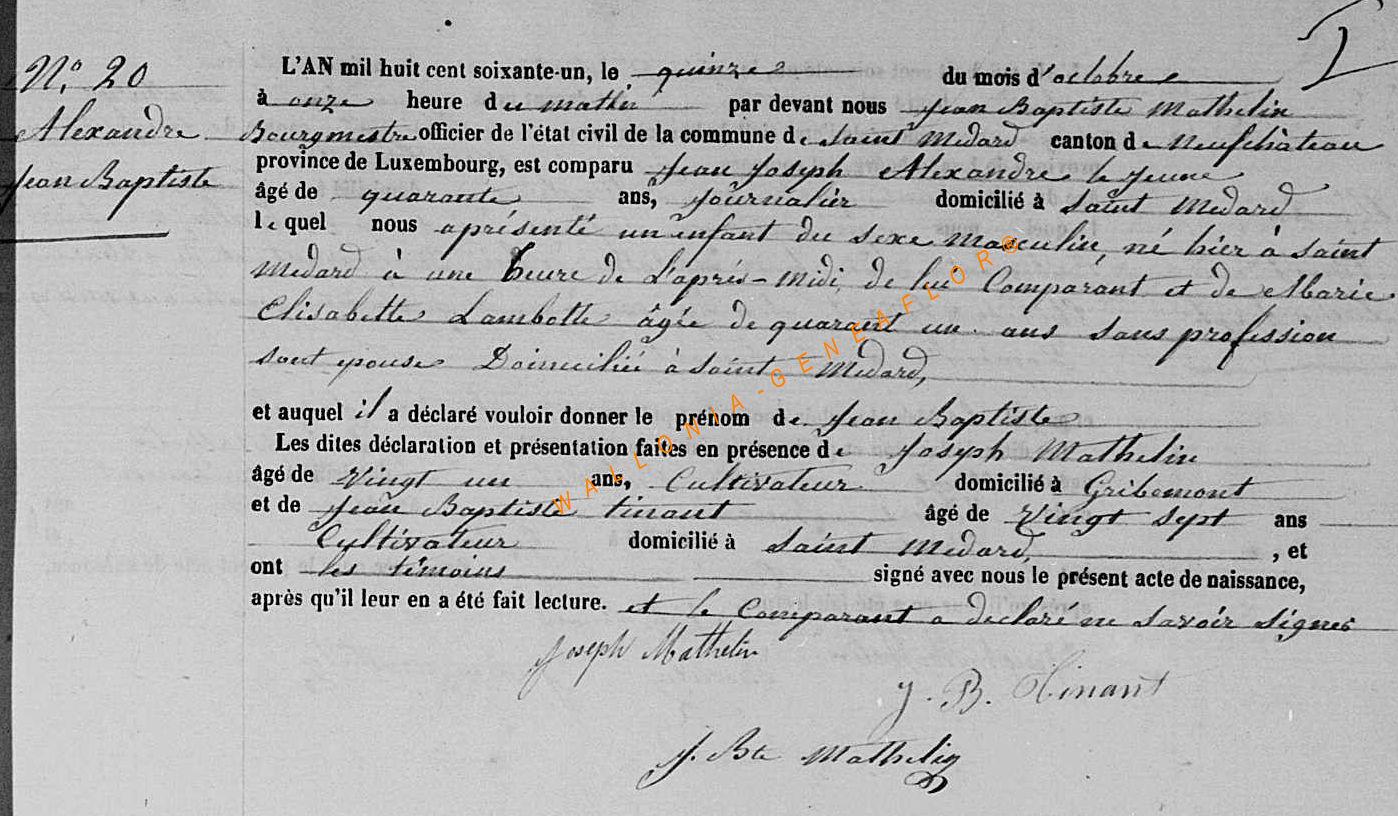 I
N.o 20
Alexandre
Jean Baptiste
L'AN mil huit cent soixante-un, le quinze du mois d'octobre
à onze heure du mathin par devant nous Jean Baptiste Mathelin
Bourgmestre officier de l'état civil de la commune de Saint Medard canton de Neufchâteau
province de Luxembourg, est comparu Jean Joseph Alexandre le jeune
âgé de quarante ans, journalier domicilié à Saint Medard
lequel nous aprésenté un enfant du sexe masculin, né hier à Saint
Medard à une heure de l'après-midi, de lui Comparant et de Marie
Elisabette Lambotte âgée de quarant un ans sans profession
sont epouse Domiciliée à Saint Medard,
et auquel il a déclaré vouloir donner le prénom de Jean Baptiste
Les dites déclaration et présentation faites en présence de Joseph Mathelin
âgé de Vingt un ans, Cultivateur domicilié à Gribomont
et de Jean Baptiste tinant âgé de Vingt sept ans
Cultivateur domicilié à Saint Medard, , et
ont les témoins signé avec nous le présent acte de naissance,
après qu'il leur en a été fait lecture. et le Comparant a declaré ne savoir signer
Joseph Mathelin
J. B. Tinant
J. Bte Mathelin
WALLONIA-GENEAFLOR®